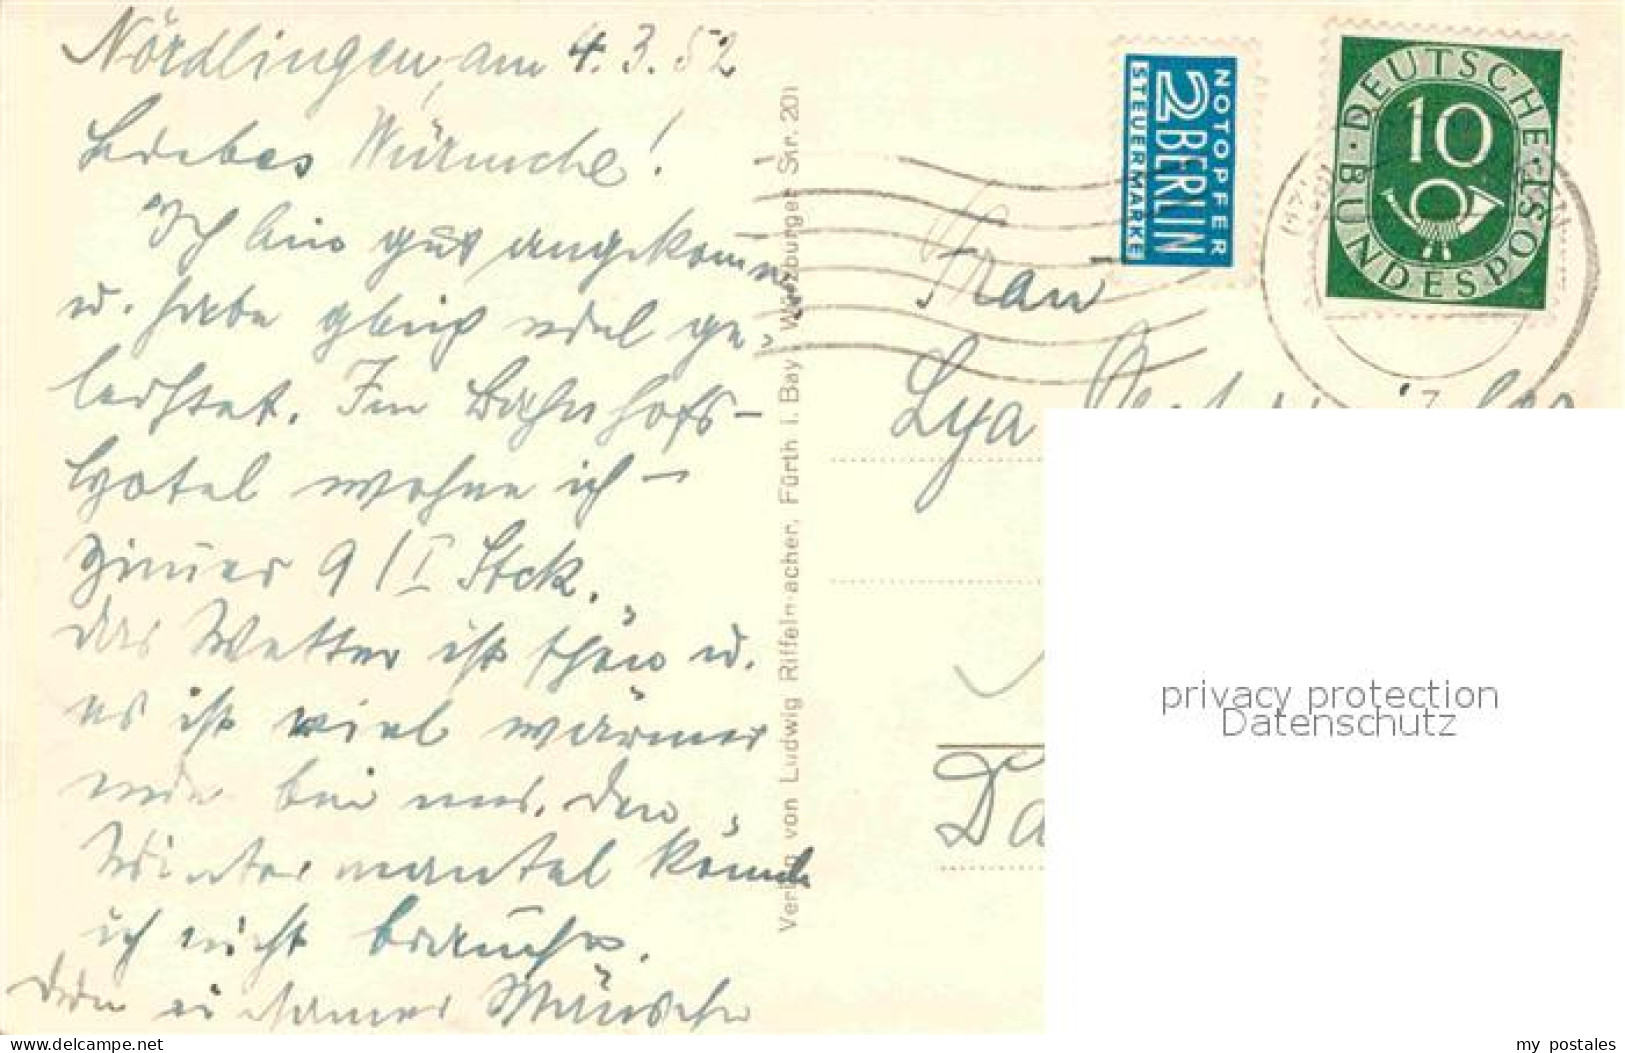 Nördlingen, am 4.3.52
Liebes
Ich bin gut angekommen
u. habe gleich viel ge-
leistet. Im Bahnhofs-
hotel wohne ich –
Zimmer 9 / I Stck.
Das Wetter ist schön u.
es ist viel wärmer
wie bei uns. Den
Wintermantel könnte
ich nicht brauchen.
Dein einsamer
Verlag von Ludwig Riffelmacher, Fürth i. Bay., Würzburger Str. 201
NOTOPFER
2 BERLIN
STEUERMARKE
DEUTSCHE BUNDESPOST
10
Frau
Lya
Da
privacy protection
Datenschutz
www.delcampe.net
my_postales